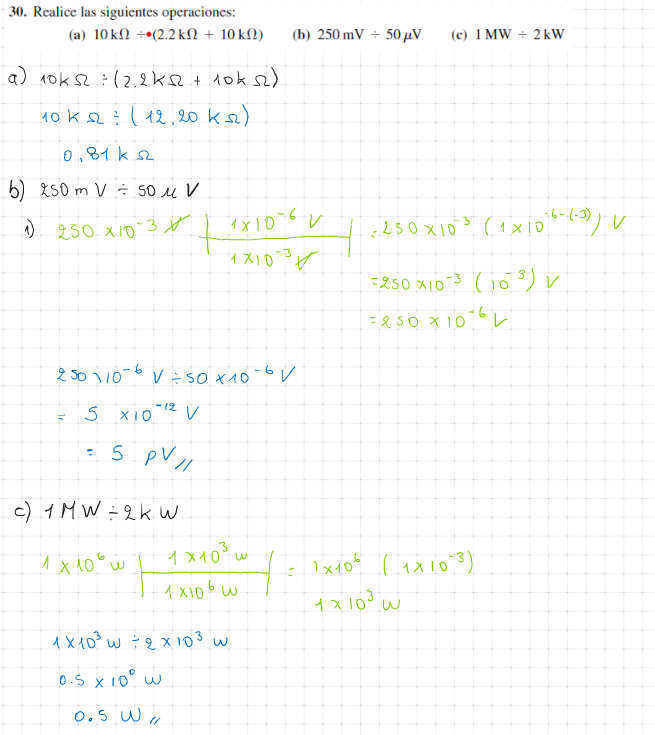 30. Realice las siguientes operaciones:
(a) 10 kΩ ÷ (2.2 kΩ + 10 kΩ) (b) 250 mV ÷ 50 μV (c) 1 MW ÷ 2 kW
a) 10k Ω ÷ (2.2kΩ + 10k Ω)
10 k Ω ÷ ( 12,20 k Ω)
0,81 k Ω
b) 250 m V ÷ 50 μ V
1) 250 x10^-3 V | 1x10^-6 V / 1x10^-3 V | = 250 x10^-3 ( 1 x10^-6-(-3)) V
=250 x10^-3 ( 10^-3) V
=250 x 10^-6 V
250 x10^-6 V ÷ 50 x10^-6 V
= 5 x10^-12 V
= 5 pV //
c) 1 M W ÷ 2 k W
1 x 10^6 w | 1 x10^3 w / 1 x10^6 w | = 1x10^6 ( 1x10^-3)
1 x 10^3 w
1x10^3 w ÷ 2 x 10^3 w
0.5 x 10^0 w
0.5 W //